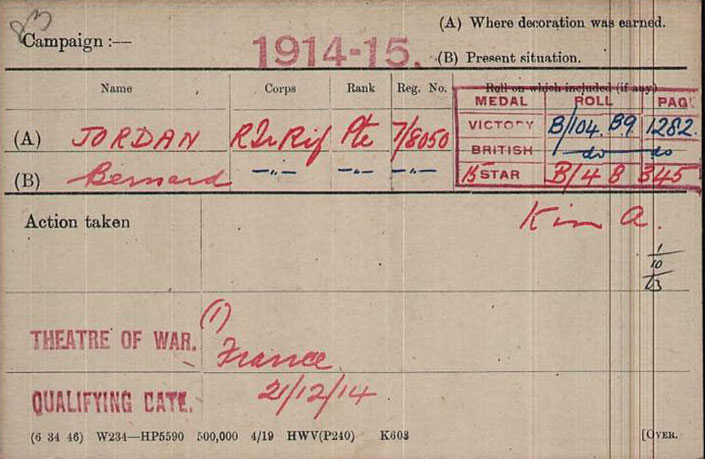 83
(A) Where decoration was earned.
Campaign :— 1914-15. (B) Present situation.
Name Corps Rank Reg. No. Roll on which included (if any)
MEDAL ROLL PAGE
(A) JORDAN R Ir Rif Pte 7/8050 VICTORY B/104. B9 1282.
BRITISH — do — do
(B) Bernard —〃— —〃— —〃— 15 STAR B/4 B 345
Action taken K in A.
1
10
13
THEATRE OF WAR. (1) France
QUALIFYING DATE. 21/12/14
(6 34 46) W234—HP5590 500,000 4/19 HWV(P240) K608 [OVER.